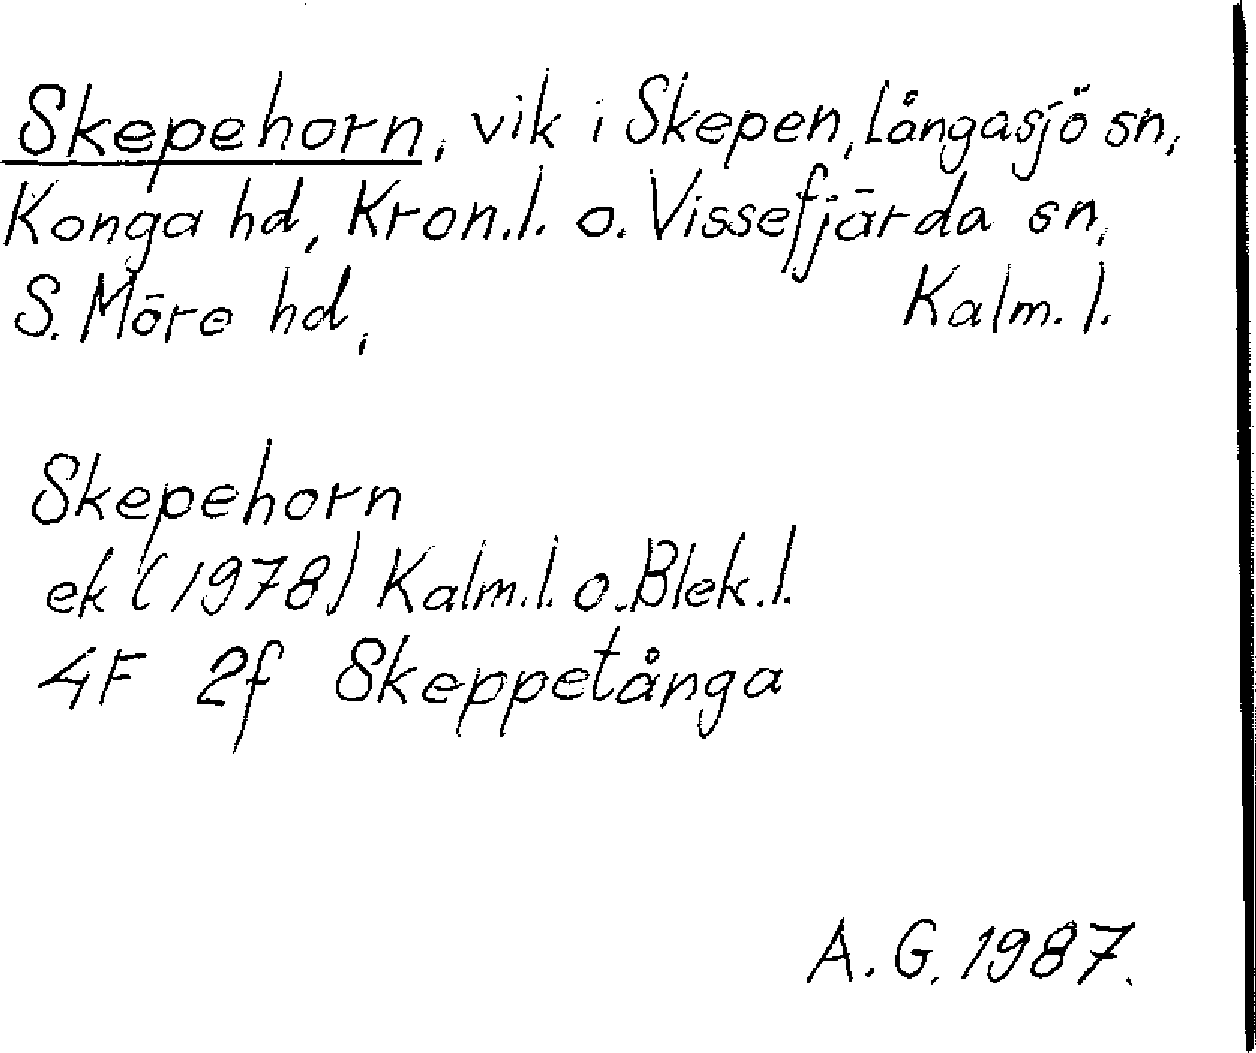 Skepehorn, vik i Skepen, Långasjö sn,
Konga hd, Kron.l. o. Vissefjärda sn,
S. Möre hd, Kalm. l.
Skepehorn
ek (1978) Kalm.l. o. Blek.l.
4F 2f Skeppetånga
A. G. 1987.